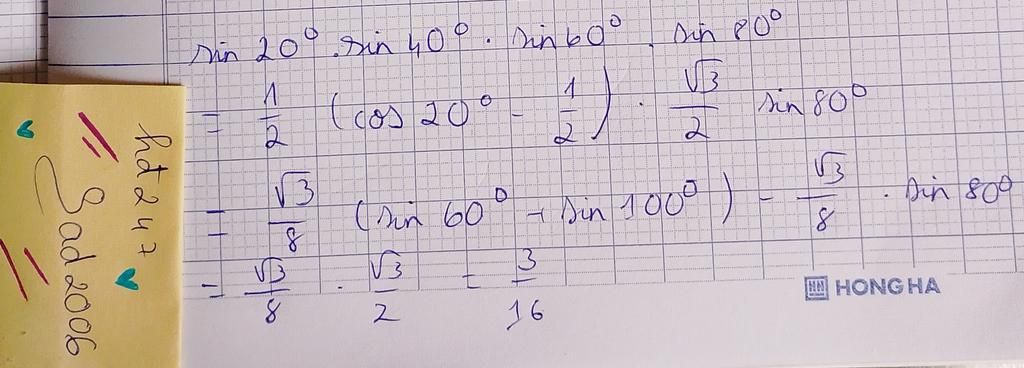 sin 20° . sin 40° . sin 60° . sin 80°
= 1/2 (cos 20° - 1/2) . √3/2 sin 80°
= √3/8 (sin 60° + sin 100°) - √3/8 . sin 80°
= √3/8 . √3/2 = 3/16
HONG HA
hđ247
Sad2006